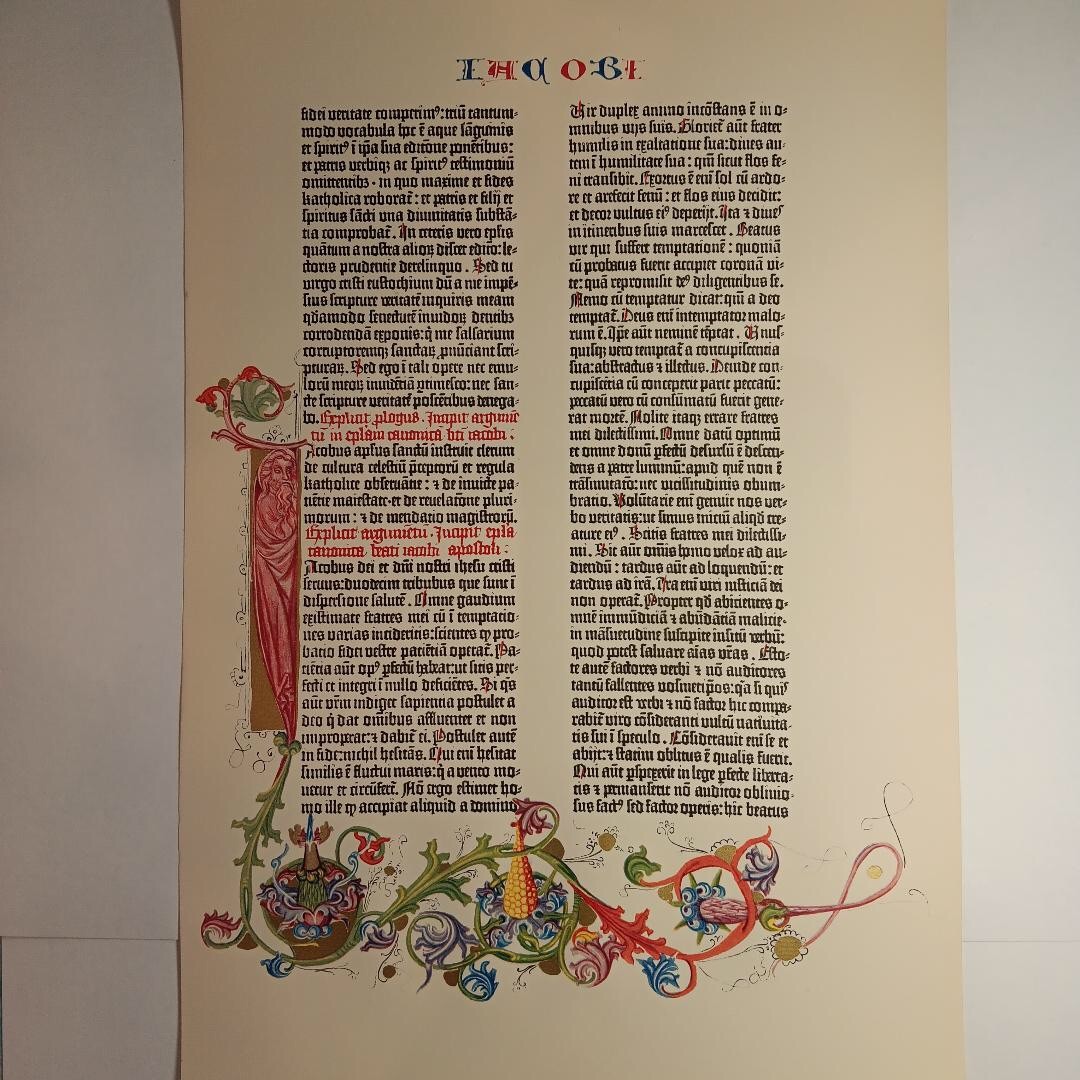 IACOBI
fidei veritate comperim⁹: triū tantum-
modo vocabula hoc ē aque sāguinis
et spirit⁹ ī ip̄a sua editōne ponētibus:
et patris verbiqȝ ac spirit⁹ testimoniū
omittentibȝ · in quo maxime et fides
katholica roborat̄: et patris et filij et
spiritus sācti vna diuinitatis substā-
tia comprobat̄. In ceteris vero ep̄lis
quātum a nostra alioꝝ distet editō: le-
ctoris prudentie derelinquo. Sed tu
virgo cristi eustochium dū a me impē-
sius scripture veritatē inquiris meam
qd̄amodo senectutē inuidoꝝ dentibȝ
corrodendā exponis: q̄ me falsarium
corruptoremqȝ sanctaꝝ pn̄ūciant scri-
pturaꝝ. Sed ego ī tali opere nec emu-
loꝝ meoꝝ inuidētiā ꝑtimesco: nec san-
cte scripture veritatē poscētibus denega-
bo. Explicit ꝓlogus. Incipit argumē
tū in ep̄lam canonicā bt̄i iacobi:
Iacobus apl̄us sanctū instruit clerum
de cultura celestiū p̄ceptoꝝ et regula
katholice obseruātie: ⁊ de inuicte pa-
tiētie maiestate· et de reuelatōne pluri-
morum: ⁊ de mendatio magistroꝝ.
Explicit argumētū. Incipit ep̄la
canonica beati iacobi apostoli:
Iacobus dei et dn̄i nostri ihesu cristi
seruus: duodecim tribubus que sunt ī
dispersione salutē. Omne gaudium
existimate fratres mei cū ī temptatio-
nes varias incideritis: scientes qꝫ pro-
batio fidei vestre patiētiā operat̄. Pa-
ciētia aūt op⁹ ꝑfectū habeat: ut sitis per-
fecti et integri ī nullo deficiētes. Si q̇s
aūt vr̄m indiget sapientia postulet a
deo q̇ dat om̄ibus affluenter et non
improperat: ⁊ dabit̄ ei. Postulet autē
in fide: nichil hesitās. Qui eni hesitat
similis ē fluctui maris: q̇ a vento mo-
uetur et circūfert̄. Nō ergo estimet ho-
mo ille qꝫ accipiat aliquid a domino
Uir duplex animo incōstans ē in o-
mnibus vijs suis. Gloriet̄ aūt frater
humilis in exaltatione sua: diues au-
tem ī humilitate sua: qm̄ sicut flos fe-
ni transibit. Exortus ē eni sol cū ardo-
re et arefecit fenū: et flos eius decidit:
et decor vultus ei⁹ deperijt. Ita ⁊ diues
in itineribus suis marcescet. Beatus
vir qui suffert temptationē: quoniā
cū probatus fuerit accipiet coronā vi-
te: quā repromisit de⁹ diligentibus se.
Nemo cū temptatur dicat: qm̄ a deo
temptat̄. Deus eni intemptator malo-
rum ē. Ip̄e aūt neminē tēptat. Unus-
quisqȝ vero temptat̄ a concupiscentia
sua: abstractus ⁊ illectus. Deinde con-
cupiscētia cū conceperit parit peccatū:
peccatū vero cū consūmatū fuerit gene-
rat mortē. Nolite itaqȝ errare fratres
mei dilectissimi. Omne datū optimū
et omne donū ꝑfectū desursū ē descen-
dens a patre luminū: apud quē non ē
trāsmutatō: nec vicissitudinis obum-
bratio. Volūtarie eni genuit nos ver-
bo veritatis: ut simus iniciū aliqd̄ cre-
ature ei⁹. Scitis fratres mei dilectissi-
mi. Sit aūt om̄is homo velox ad au-
diendū: tardus aūt ad loquendū: et
tardus ad irā. Ira eni viri iusticiā dei
non operat̄. Propter qd̄ abicientes o-
mnē immūdiciā ⁊ abūdātiā malicie·
in māsuetudine suscipite insitū verbū:
quod potest saluare aīas vr̄as. Esto-
te autē factores verbi ⁊ nō auditores
tantū fallentes vosmetip̄os: q̇a si quis
auditor est verbi ⁊ nō factor hic compa-
rabit̄ viro cōsideranti vultū natiuita-
tis sui ī speculo. Cōsiderauit eni se et
abijt: ⁊ statim oblitus ē qualis fuerit.
Qui aūt ꝑspexerit in lege ꝑfecte liberta-
tis ⁊ permanserit nō auditor obliuio-
sus fact⁹ sed factor operis: hic beatus